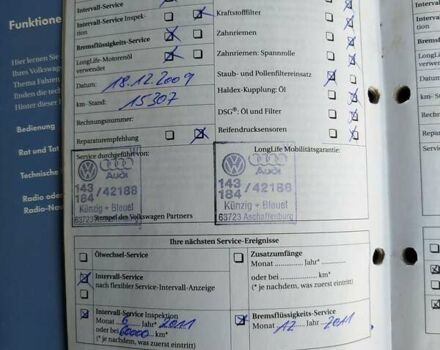 Funktione
Hier lernen Sie
Ihres Volkswagen
Thema Fahren
Enden die tech
Hinter dieser
Bedienung
Rat und Tat
Technische
Radio oder
Radio-Na
Intervall-Service
Intervall-Service Inspek-
tion
Bremsflüssigkeits-Service
LongLife-Motorenöl
verwendet
Datum: 18.12.2009
km-Stand: 15307
Rechnungsnummer:
Reparaturempfehlung
Service durchgeführt von:
143
184 /42188
Künzig + Blauel
63723 Aschaffenburg
Stempel des Volkswagen Partners
Kraftstofffilter
Zahnriemen
Zahnriemen: Spannrolle
Staub- und Pollenfiltereinsatz
Haldex-Kupplung: Öl
DSG®: Öl und Filter
Reifendrucksensoren
LongLife Mobilitätsgarantie:
Audi
143
184 /42188
Künzig + Blauel
63723 Aschaffenburg
Ihre nächsten Service-Ereignisse
Ölwechsel-Service
Intervall-Service
nach flexibler Service-Intervall-Anzeige
Intervall-Service Inspektion
6 Jahr* 2011
oder bei 60000 km*
(* je nachdem, was zuerst eintritt)
Zusatzumfänge
Monat Jahr*
oder bei km*
(* je nachdem, was zuerst eintritt)
Bremsflüssigkeits-Service
Monat 12 Jahr 2011
Intervall-
Bremsflüssi
LongLife-
verwendet
Datum:
km-Stand:
Rechnungs
Reparatur
Service du